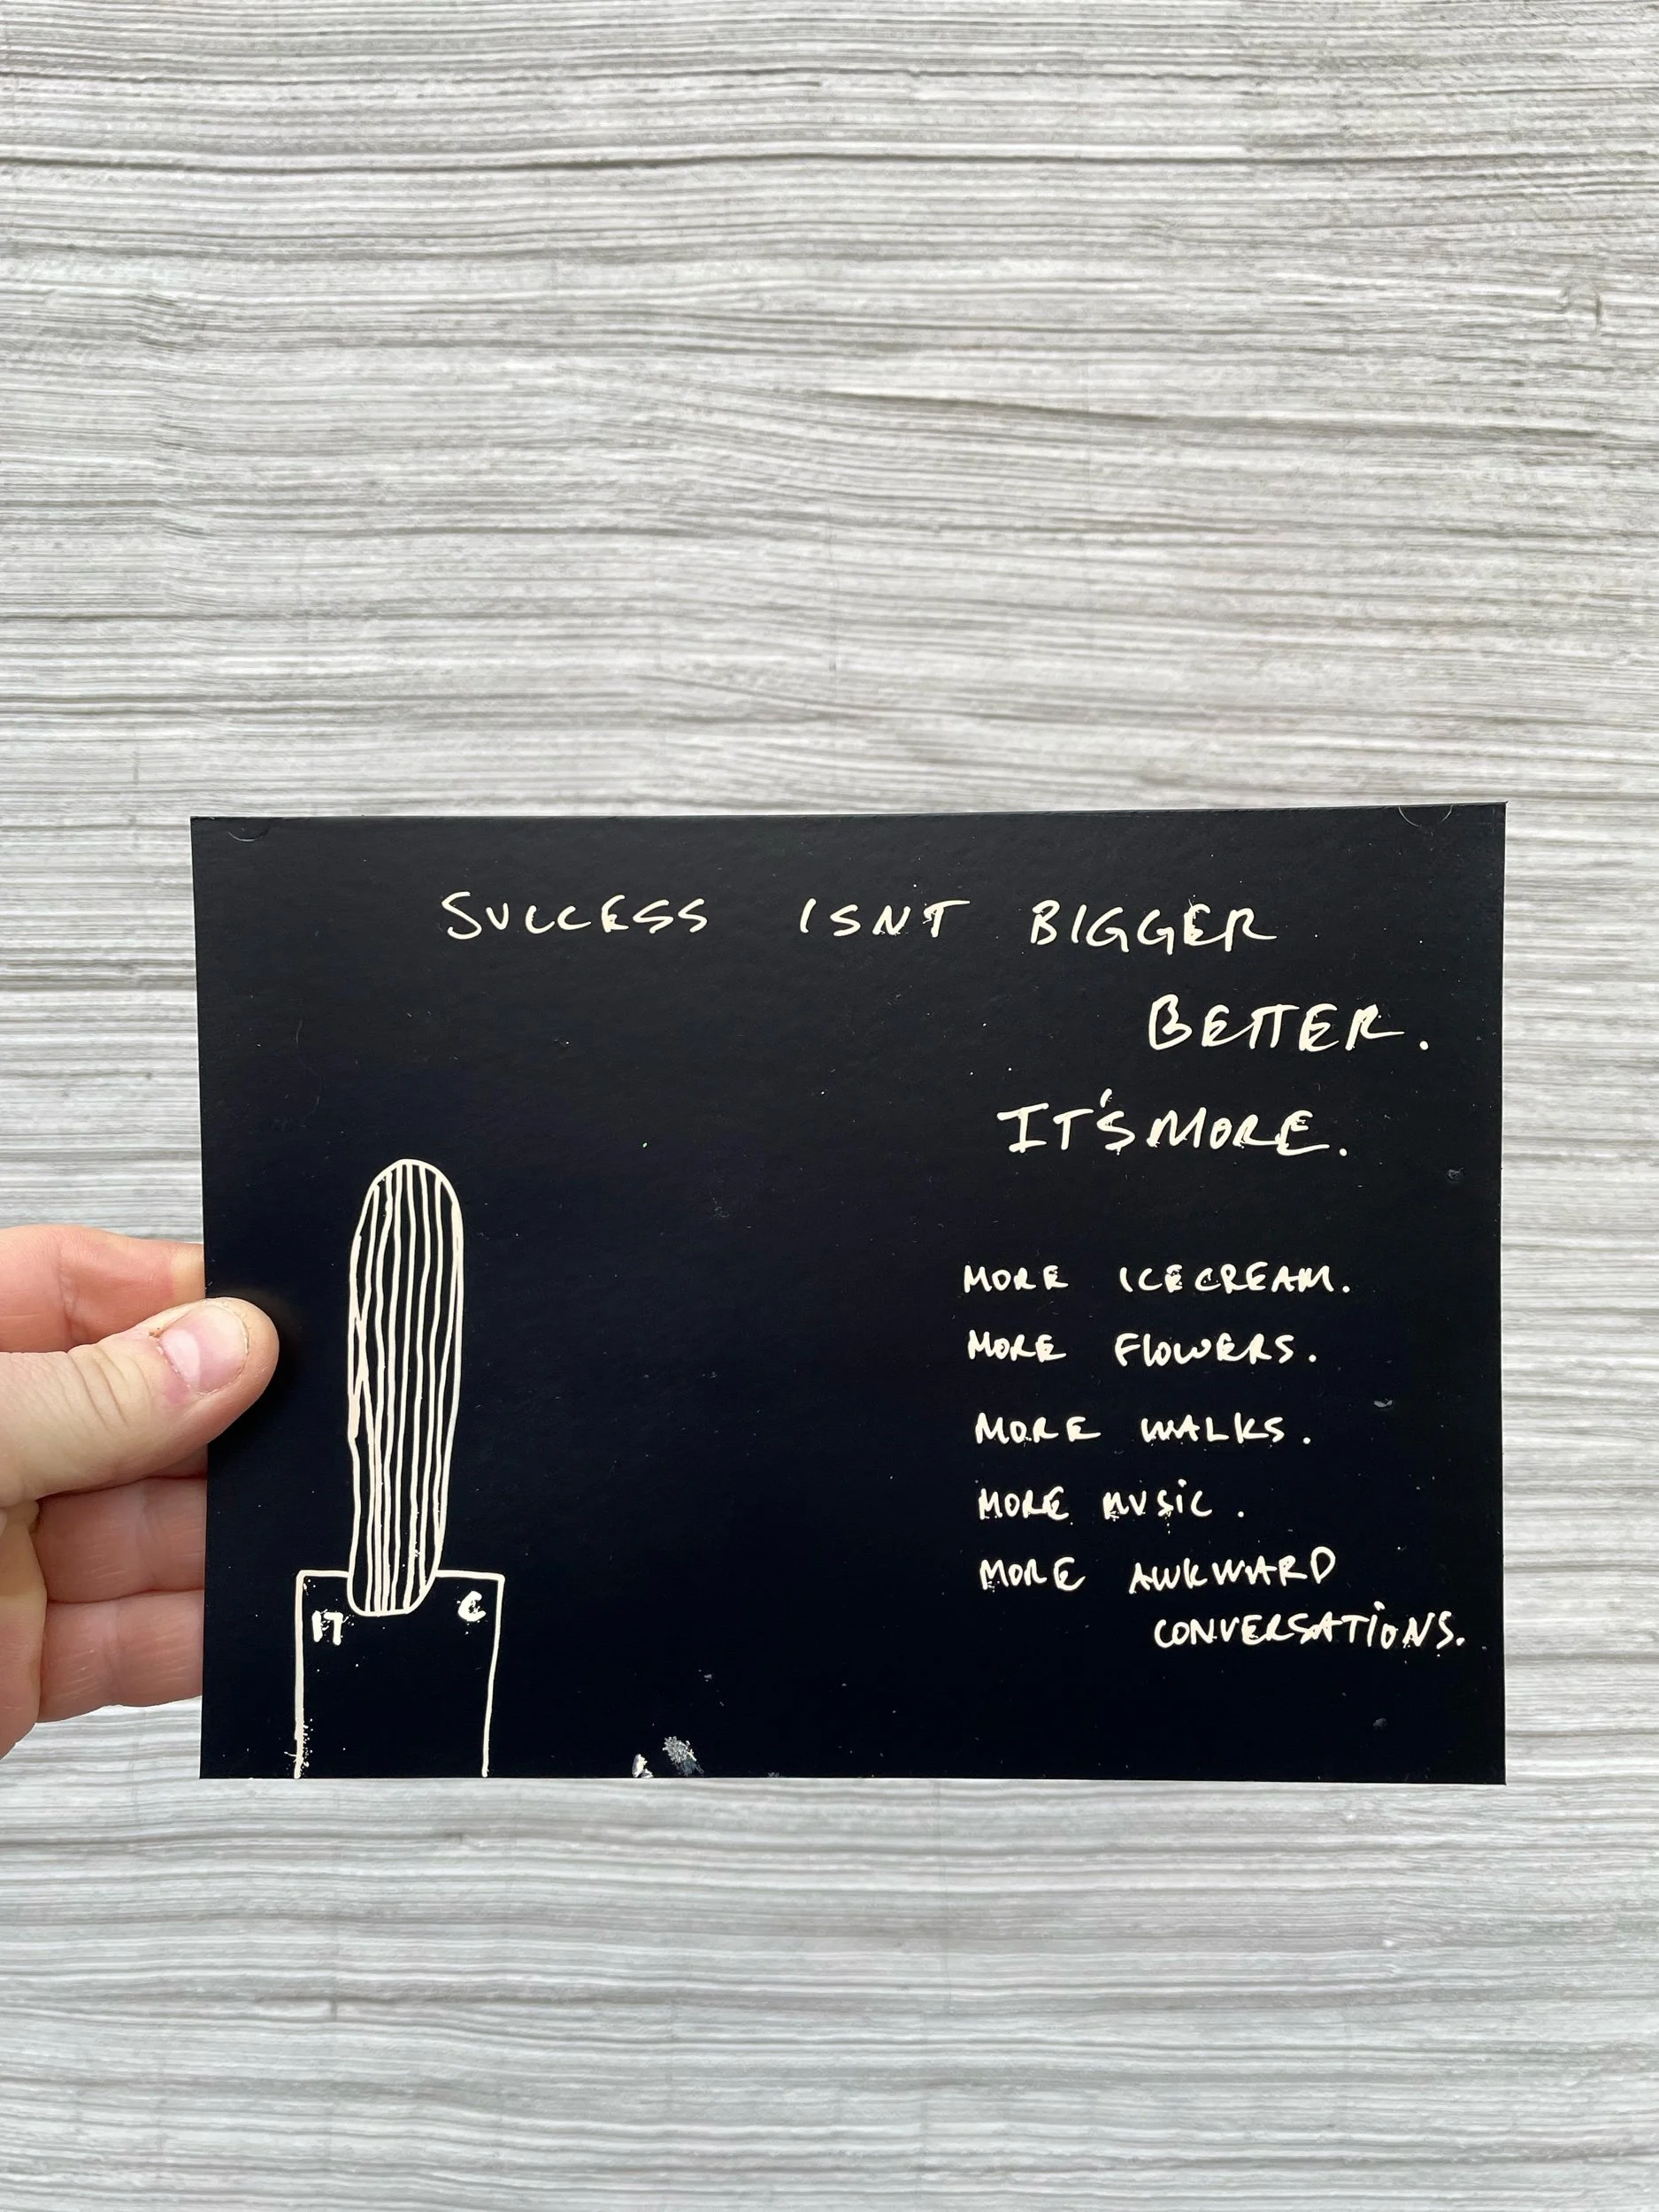 SUCCESS ISNT BIGGER
BETTER.
IT'S MORE.
MORE ICECREAM.
MORE FLOWERS.
MORE WALKS.
MORE MUSiC.
MORE AWKWARD
CONVERSATiONS.
17 C